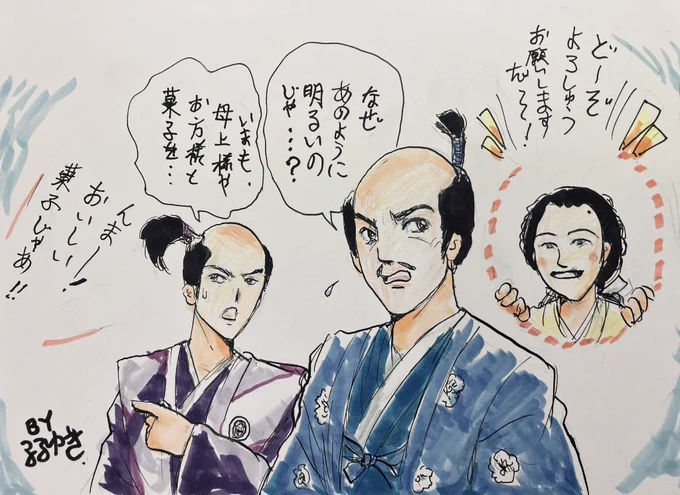 ど〜ぞ
よろしゅう
お願いします
だって！
なぜ
あのように
明るいの
じゃ…？
いまも、
母上様や
お方様と
菓子を…
んま〜！
おいしい
菓子じゃあ!!
BY
るるゆき.